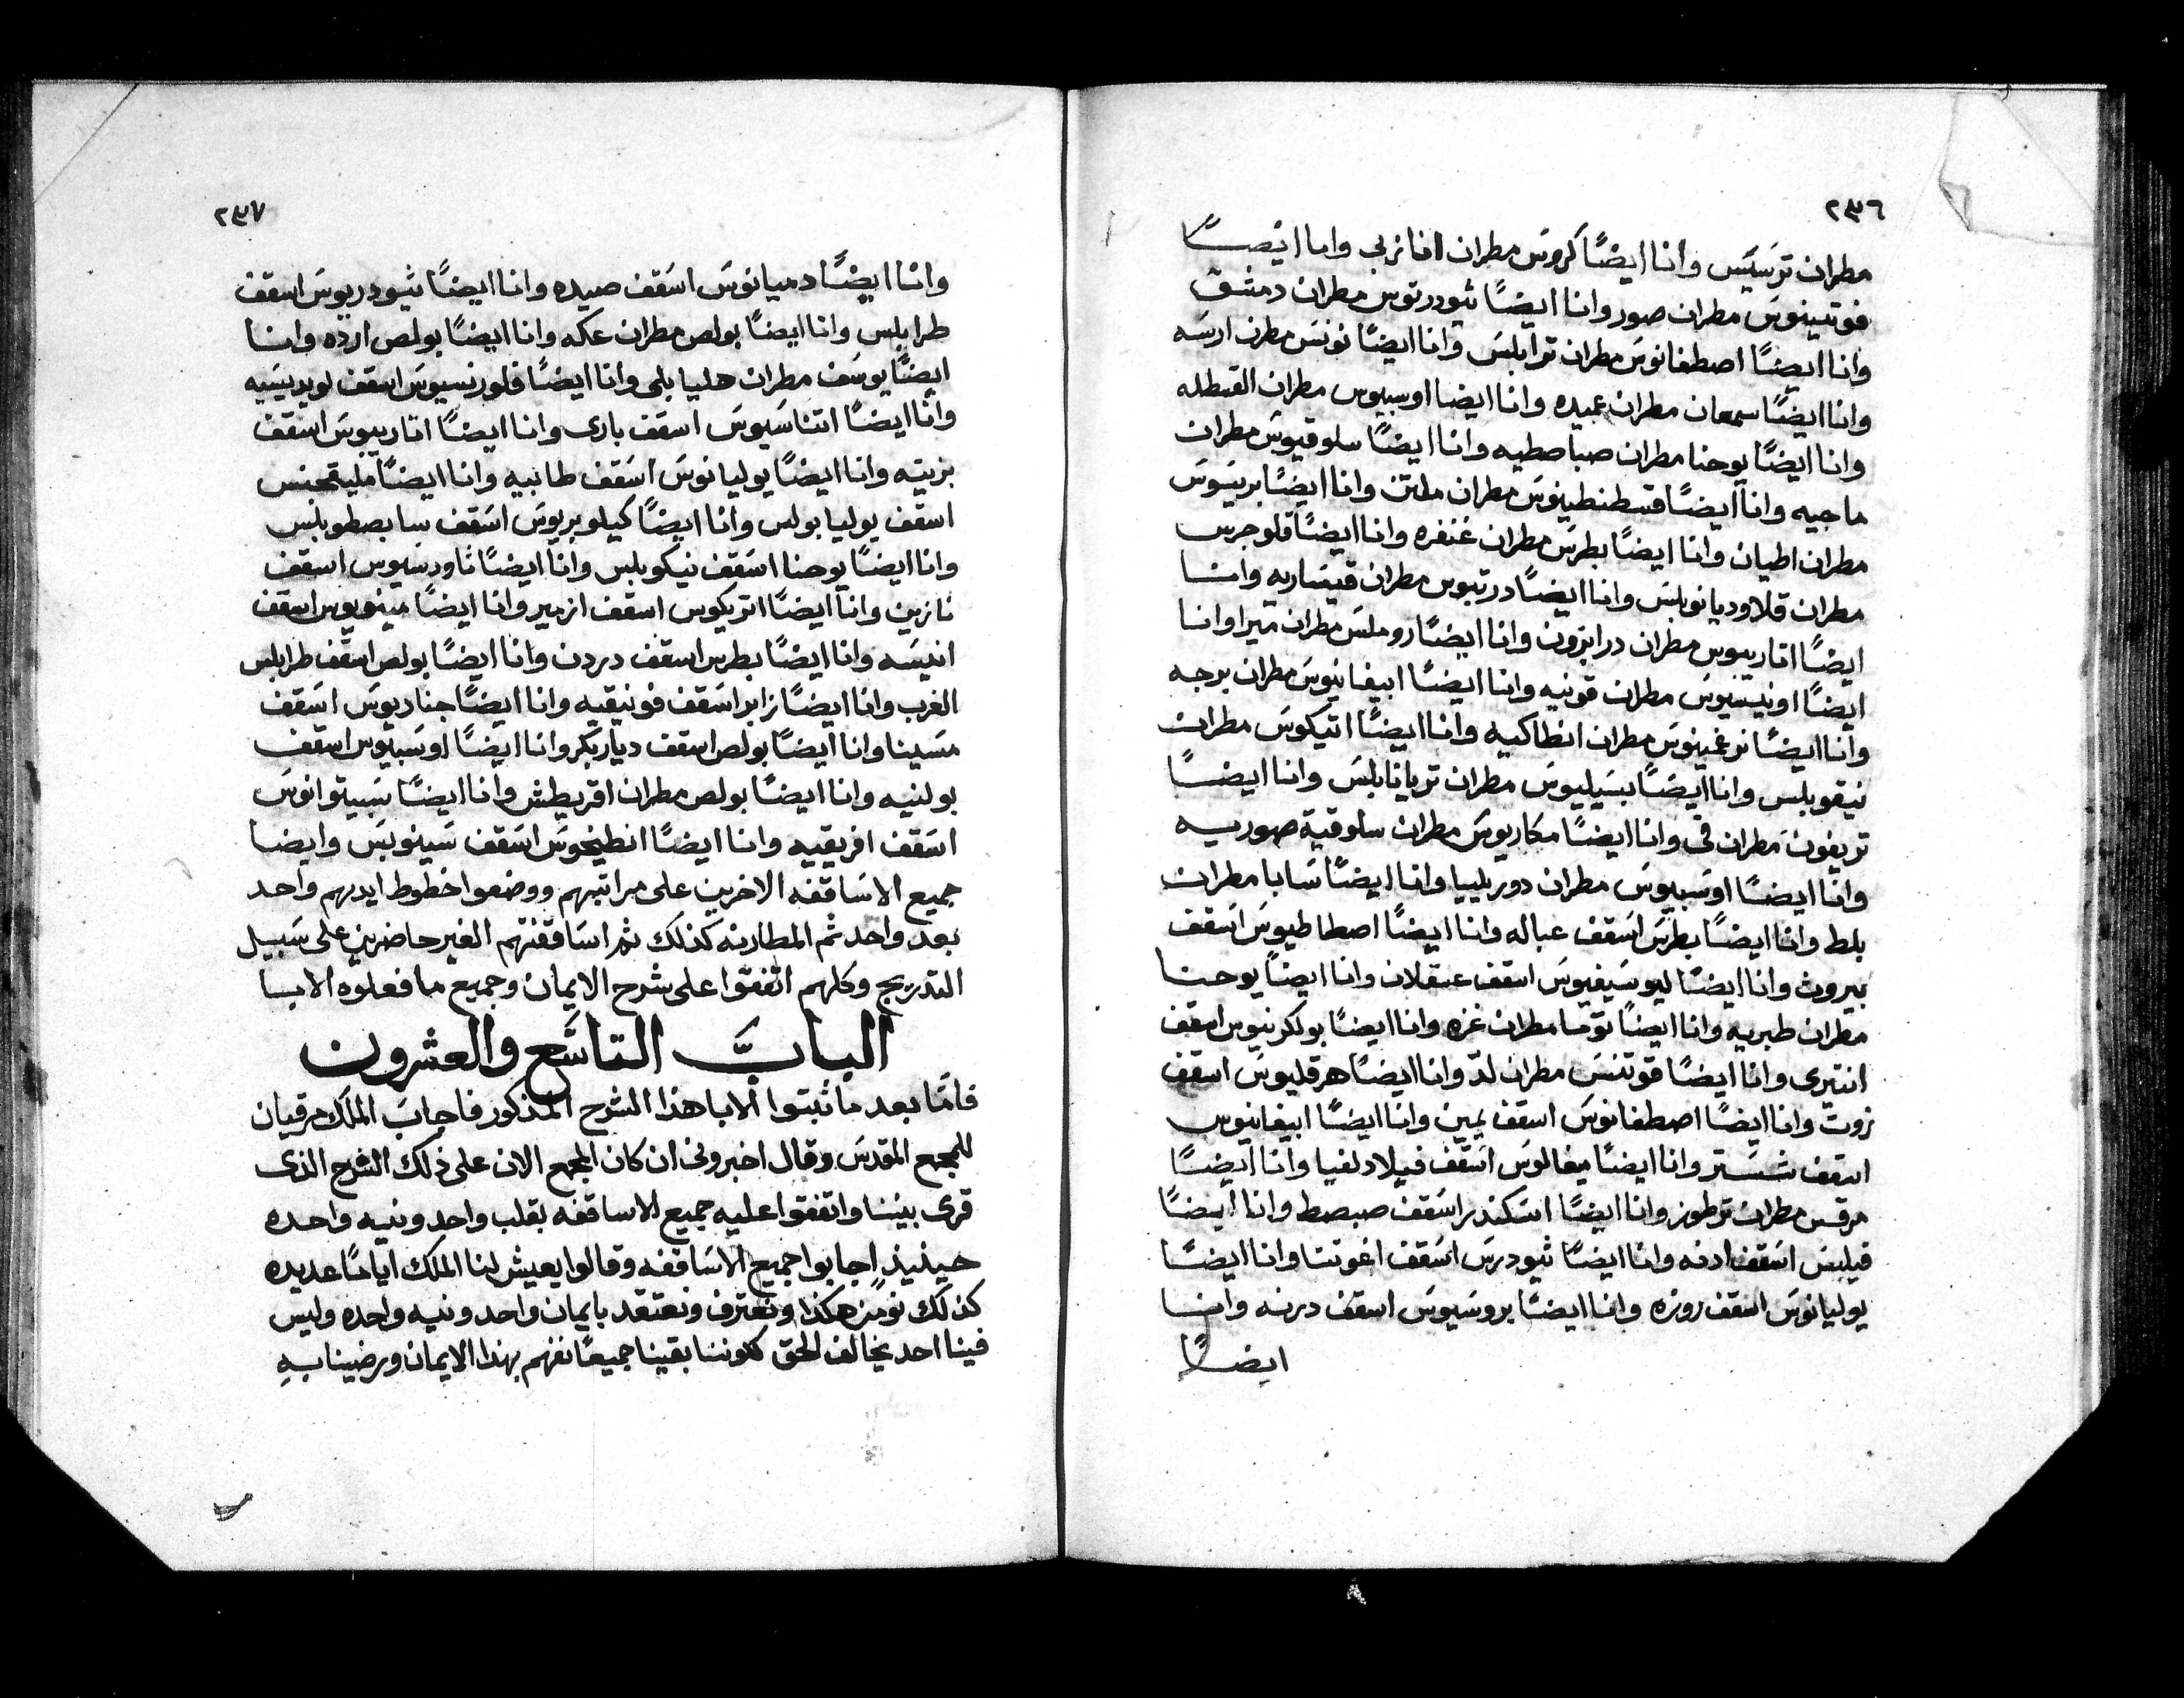 ٢٣٦
مطران ترسيس وانا ايضًا كروس مطران انازربي وانا ايضًا
فوتينوس مطران صور وانا ايضًا ثيودرتوس مطران دمشق
وانا ايضًا اصطفانوس مطران ترابلس وانا ايضًا نونس مطرن ارسه
وانا ايضًا سمعان مطران عبيده وانا ايضا اوسبيوس مطران القبطله
وانا ايضًا يوحنا مطران صباصطيه وانا ايضًا سلوقيوس مطران
ماجيه وانا ايضًا قسطنطينوس مطران ملتن وانا ايضًا بريسوس
مطران اطيان وانا ايضًا بطرس مطران غنفره وانا ايضًا قلوجرس
مطران قلاوديانوبلس وانا ايضًا درتيوس مطران قيساريه وانا
ايضًا اتاربيوس مطران درابزون وانا ايضًا روملس مطران ميرا وانا
ايضًا اونيسيوس مطران قونيه وانا ايضًا ابيفانيوس مطران برجه
وانا ايضًا نرغينوس مطران انطاكيه وانا ايضًا اتيكوس مطران
نيقوبلس وانا ايضًا بسيليوس مطران تريانابلس وانا ايضًا
تريفون مطران في وانا ايضًا مكاريوس مطران سلوقية صوريه
وانا ايضًا اوسبيوس مطران دوريلييا وانا ايضًا سابا مطران
بلط وانا ايضًا بطرس اسقف عباله وانا ايضًا اصطاطيوس اسقف
بيروت وانا ايضًا ليوسيفيوس اسقف عسقلان وانا ايضًا يوحنا
مطران طبريه وانا ايضًا توما مطران غزه وانا ايضًا بولكرنيوس اسقف
انتيرى وانا ايضًا فوتنس مطران لدّ وانا ايضًا هرقليوس اسقف
زوت وانا ايضًا اصطفانوس اسقف يمين وانا ايضًا ابيفانيوس
اسقف شستر وانا ايضًا ميغالوس اسقف فيلادلفيا وانا ايضًا
مرقس مطران ترطوز وانا ايضًا اسكندر اسقف صبصط وانا ايضًا
فيلبس اسقف ادنه وانا ايضًا ثيودرس اسقف اغوتتا وانا ايضًا
يوليانوس اسقف روزه وانا ايضًا بروسيوس اسقف درنه وانا
ايضًا
٢٣٧
وانا ايضًا دميانوس اسقف صيده وانا ايضًا ثيودريوس اسقف
طرابلس وانا ايضًا بولص مطران عكه وانا ايضًا بولص ارده وانا
ايضًا يوسف مطران هليا بلى وانا ايضًا فلورنسيوس اسقف لويديسيه
وانا ايضًا اتناسيوس اسقف بارى وانا ايضًا اتاربيوس اسقف
بزيته وانا ايضًا يوليانوس اسقف طانبيه وانا ايضًا مليتحنس
اسقف يوليا بولس وانا ايضًا كيلوبريوس اسقف سابصطوبلس
وانا ايضًا يوحنا اسقف نيكوبلس وانا ايضًا ثاودسيوس اسقف
نازين وانا ايضًا اتريكوس اسقف ازمير وانا ايضًا مينويوس اسقف
انيسه وانا ايضًا بطرس اسقف دردن وانا ايضًا بولص اسقف طرابلس
الغرب وانا ايضًا زابر اسقف فونيقيه وانا ايضًا جناديوس اسقف
مسينا وانا ايضًا بولص اسقف دياربكر وانا ايضًا اوسبيوس اسقف
بولنيه وانا ايضًا بولص مطران اقريطش وانا ايضًا سبيتوانوس
اسقف افريقيه وانا ايضًا انطيخوس اسقف سينوبس وايضا
جميع الاساقفه الاخرين على مراتبهم ووضعوا خطوط ايديهم واحد
بعد واحد ثم المطارنه كذلك ثم اساقفتهم الغير حاضرين على سبيل
التدريج وكلهم اتفقوا على شرح الايمان وجميع ما فعلوه الابا
الباب التاسع والعشرون
فامّا بعد ما ثبتوا الابا هذا الشرح المذكور فاجاب الملك مرقيان
للمجمع المقدس وقال اخبرونى ان كان المجمع الان على ذلك الشرح الذى
قرى بيننا واتفقوا عليه جميع الاساقفه بقلب واحد ونيه واحده
حينيذ اجابوا جميع الاساقفه وقالوا يعيش لنا الملك ايامًا عديده
كذلك نومن هكذا ونعترف ونعتقد بايمان واحد ونيه واحده وليس
فينا احد يخالف الحق كوننا بقينا جميعًا نفهم بهذا الايمان ورضينا بهِ